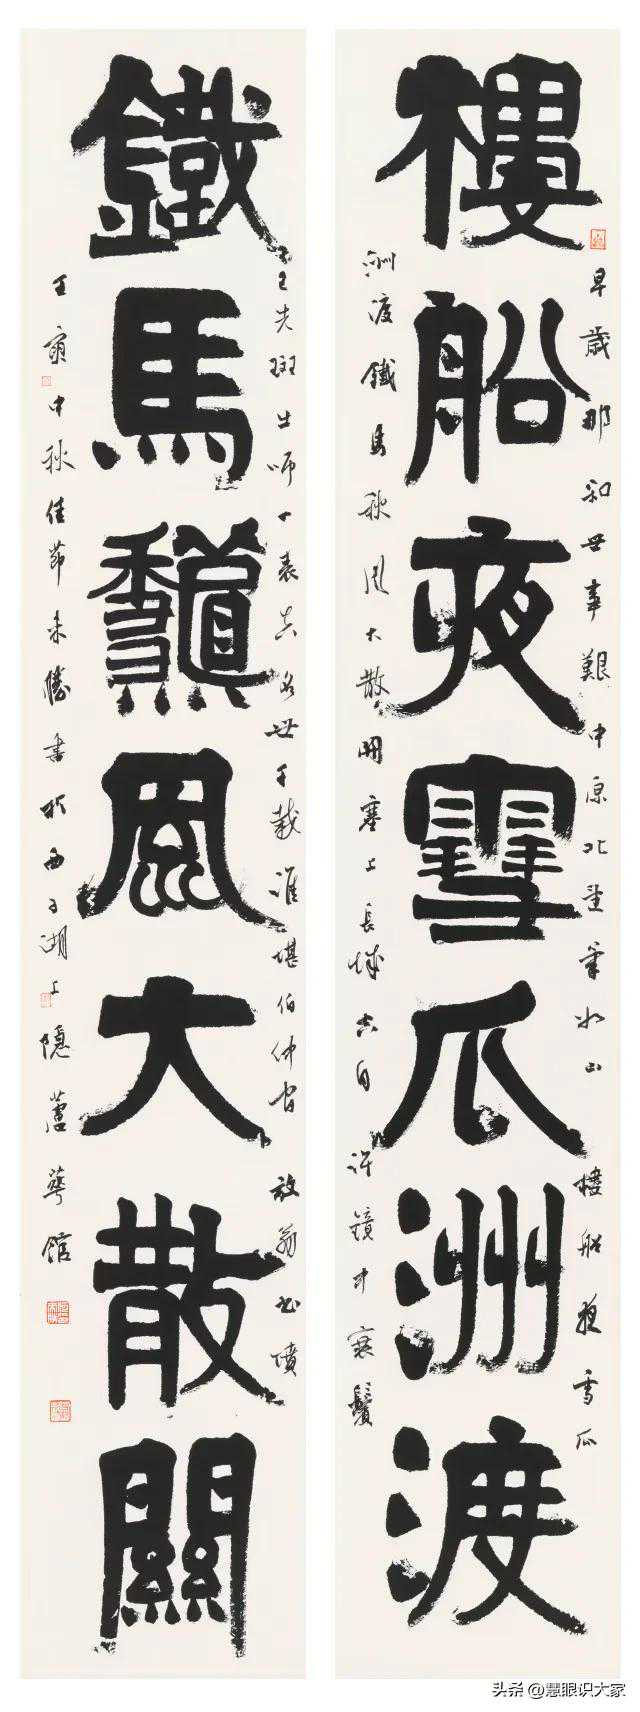 早歲那知世事艱中原北望氣如山樓船夜雪瓜
樓船夜雪瓜洲渡
洲渡鐵馬秋風大散關塞上長城空自許鏡中衰鬢
已先斑出師一表真名世千載誰堪伯仲間放翁書憤
鐵馬龝風大散關
壬寅中秋佳節朱勝書於西子湖上隱館
头条 @慧眼识大家